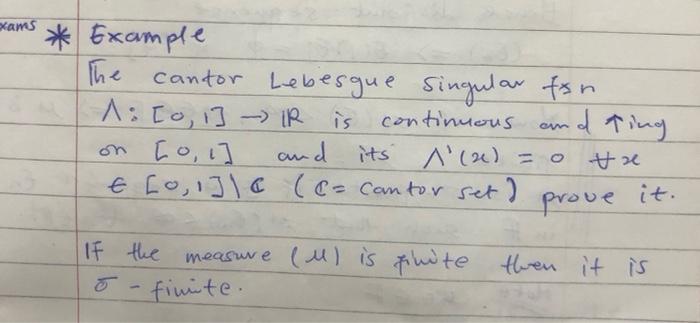 xams * Example
The cantor Lebesgue singular fxn
Λ: [0,1] → ℝ is continuous and ↑ing
on [0,1] and its Λ'(x) = 0 ∀x
∈ [0,1]\ℂ (ℂ = Cantor set) prove it.
If the measure (μ) is finite then it is
σ - finite.